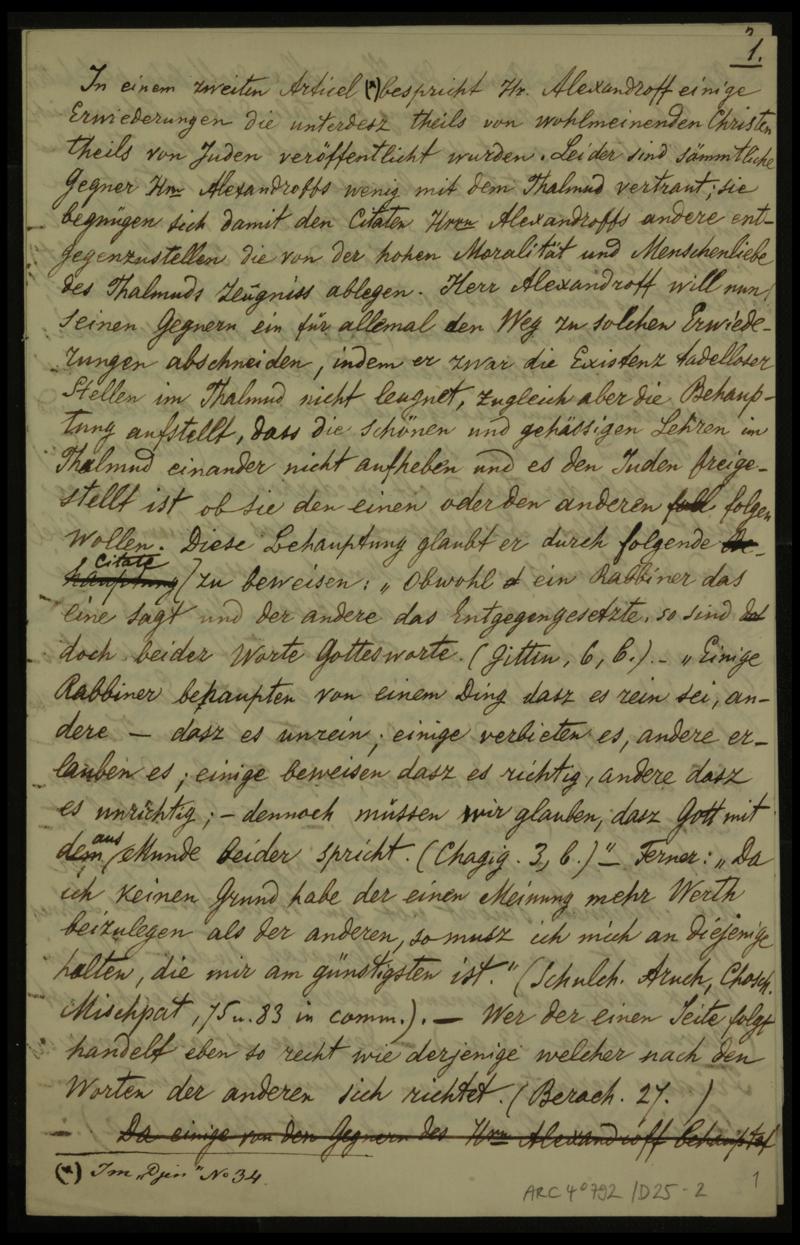 1.
In einem zweiten Articel (*) bespricht Hr. Alexandroff einige
Erwiederungen die unterdesz theils von wohlmeinenden Christen
theils von Juden veröffentlicht wurden. Leider sind sämmtliche
Gegner Hrn Alexandroffs wenig mit dem Thalmud vertraut; sie
begnügen sich damit den Citaten Hrrn Alexandroffs andere ent-
gegenzustellen die von der hohen Moralität und Menschenliebe
des Thalmuds Zeugniss ablegen. Herr Alexandroff will nun
seinen Gegnern ein für allemal den Weg zu solchen Erwiede-
rungen abschneiden, indem er zwar die Existenz tadelloser
Stellen im Thalmud nicht leugnet, zugleich aber die Behaup-
tung aufstellt, dass die schönen und gehässigen Lehren im
Thalmud einander nicht aufheben und es den Juden freige-
stellt ist ob sie den einen oder den anderen folgen
wollen. Diese Behauptung glaubt er durch folgende Be-
hauptung Citate zu beweisen: „Obwohl ein Rabbiner das
eine sagt und der andere das Entgegengesetzte, so sind
doch beider Worte Gottesworte. (Gittin, 6, b.). – „Einige
Rabbiner behaupten von einem Ding dasz es rein sei, an-
dere — dasz es unrein; einige verbieten es, andere er-
lauben es; einige beweisen dasz es richtig, andere dasz
es unrichtig; – dennoch müssen wir glauben, dasz Gott mit
dem aus Munde beider spricht. (Chagig. 3, b.)" – Ferner: „Da
ich keinen Grund habe der einen Meinung mehr Werth
beizulegen als der anderen, so musz ich mich an diejenige
halten, die mir am günstigsten ist." (Schulch. Aruch, Chosch.
Mischpat, 75 u. 83 in comm.). — Wer der einen Seite folgt
handelt eben so recht wie derjenige welcher nach den
Worten der anderen sich richtet. (Berach. 27. )
— Da einige von den Gegnern des Hrn Alexandroff behauptet
(*) Im „Djen" No 34.
ARC 4° 792 / D25 - 2
1